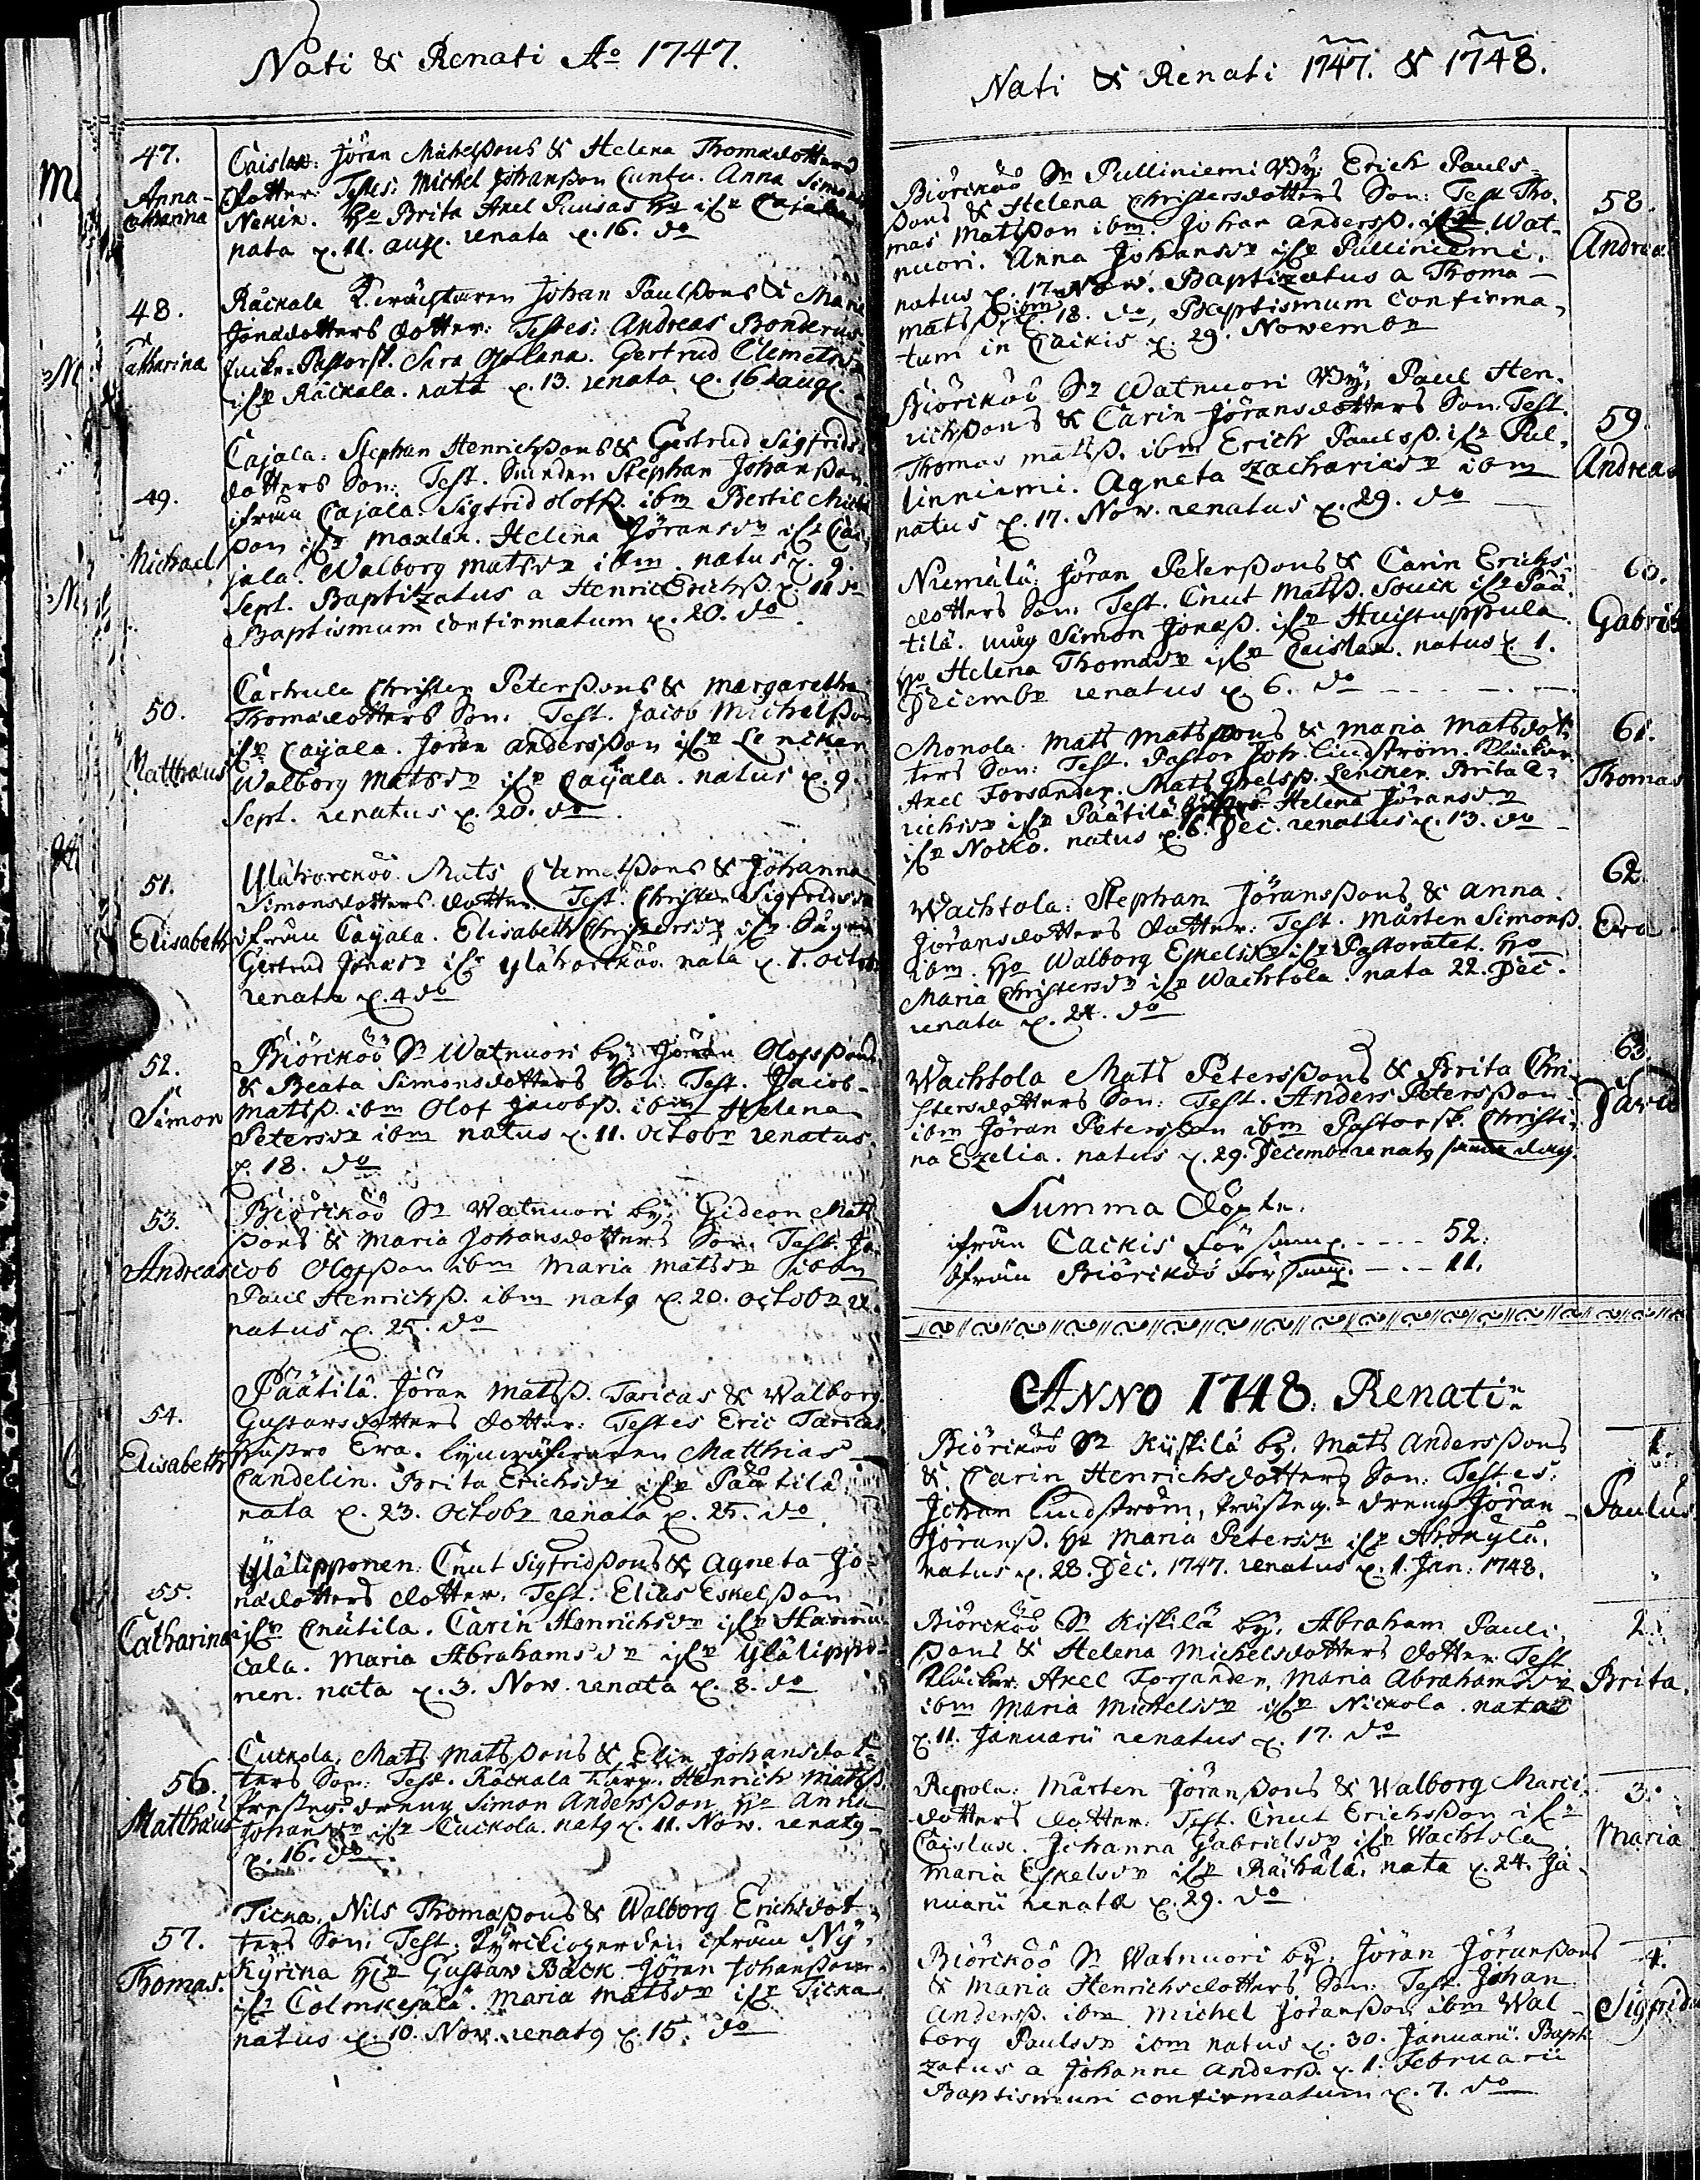 Nati & Renati Ao 1747.
47.
Anna-
Catharina
Caislax: Jöran Michelßons & Helena Thomædotters
dotter: Testes: Michel Johanßon Cuntu. Anna Simons
Nekin. Ho Brita Axel Puusas Ho ifr Cajala
nata d. 11. aug. renata d. 16. do
48.
Catharina
Räckala Johan Paulßons & Maria
Jonædotters dotter: Testes: Andreas Bonderus
Pastorsk. Sara Gertrud Clemetsdr
ifr Räckala. nata d. 13. renata d. 16 aug.
49.
Michael
Cajala: Stephan Henrichßons & Gertrud Sigfrids
dotters Son: Test. Stephan Johanßon
ifrån Cajala. Sigfrid Olofß. ibm Bertil Michel
ßon ifr Maxlax. Helena Jöransdr ifr Ca-
jala. Walborg matsdr ibm. natus d. 9.
Sept. Baptitzatus a Henric Erichß. d. 11 do
Baptismum confirmatum d. 20. do
50.
Matthæus
Cartula Christer Peterßons & Margaretha
Thomædotters Son: Test. Jacob Michelßon
ifr Cajala. Jöran anderßon ifr Lencker
Walborg Matsdr ifr Cajala. natus d. 9.
Sept. renatus d. 20. do
51.
Elisabeth
Ylähorckoo. Mats Clemetßons & Johanna
Simonsdotters dotter. Test. Christer Sigfridsß
ifrån Cajala. Elisabeth Christersdr ifr
Gertrud Jonædr ifr Ylähorckoo. nata d. 1. octobr
renata d. 4 do
52.
Simon
Biörcköö Sn Watnuori by: Jöran Olofßons
& Beata Simonsdotters Son: Test. Jacob
Matsß. ibm Olof Jacobß. ibm Helena
Petersdr ibm natus d. 11. Octobr renatus
d. 18. do
53.
Andreas
Biörcköö Sn Watnuori by: Gideon Mats
ßons & Maria Johansdotters Son. Test. Ja-
cob Olofßon ibm Maria Matsdr ibm
Paul Henrichß. ibm natg d. 20. octobr re-
natus d. 25. do
54.
Elisabeth
Päätilä. Jöran Matsß. Taricas & Walborg
Gustavsdotters dotter: Testes Eric Taricas
hustro Eva. Matthias
Candelin. Brita Erichsdr ifr Päätilä
nata d. 23. Octobr renata d. 25. do
55.
Catharina
Ylälipponen. Cnut Sigfridßons & Agneta Jo-
nædotters dotter. Test. Elias Eskelßon
ifr Cnutila. Carin Henrichsdr ifr Hannu
cala. Maria Abrahamsdr ifr Ylälippo-
nen. nata d. 3. Nov. renata d. 8. do
56.
Matthæus
Cuckola. Mats Matsßons & Elin Johansdot-
ters Son: Test. Räckala Henrich Matsß.
Presteg. dreng Simon Anderßon Ho Anna
Johansdr ifr Cuckola. natg d. 11. Nov. renatg
d. 16. do
57.
Thomas.
Ticka. Nils Thomaßons & Walborg Erichsdot-
ters Son: Test. ifrån Ny-
Kyrcka Hr Gustav Bäck. Jöran Johanßon
ifr Colmkesälä. Maria Matsdr ifr Ticka
natus d. 10. Nov. renatg d. 15. do
Nati & Renati 1747. & 1748.
Biörcköö Sn Pulliniemi By: Erich Pauls-
ßons & Helena Christersdotters Son: Test Tho-
mas Matsßon ibm. Johan andersß. ifr Wat-
nuori. Anna Johansdr ifr Pulliniemi.
natus d. 17 Nov. Baptizatus a Thoma
matsß. ibm d. 18. do, Baptismum confirma-
tum in Cackis d. 29. Novembr
58.
Andreas
Biörcköö Sn Watnuori By, Paul Hen-
richßons & Carin Jöransdotters Son: Test.
Thomas matsß. ibm Erich Paulsß. ifr Pul-
linniemi. Agneta Zachariædr ibm
natus d. 17. Nov. renatus d. 29. do
59.
Andreas
Niemälä: Jöran Peterßons & Carin Erichs-
dotters Son: Test. Cnut Matsß. Souck ifr Pää-
tilä. Simon Jonæß. ifr Huistappula
Ho Helena Thomædr ifr Caislax. natus d. 1.
Decembr renatus d. 6. do
60.
Gabriel
Monola. Mats Matsßons & Maria Matsdot-
ters Son: Test. Pastor Joh. Lindström. Klockar
Axel Forsander. Mats Lencker. Brita E-
richsdr ifr Päätilä Helena Jöransdr
ifr Nocko. natus d. 6. Dec. renatus d. 13. do
61.
Thomas
Wachtola: Stephan Jöransßons & Anna
Jöransdotters dotter: Test. Mårten Simonß
ibm. Ho Walborg Eskelsdr ifr Pastoratet. Ho
Maria Christersdr ifr Wachtola. nata 22. Dec.
renata d. 24. do
62.
Eva
Wachtola Mats Petersßons & Brita Chri-
stersdotters Son: Test. Anders Petersßon
ibm Jöran Petersßon ibm Pastorsk. Christi-
na Ezelia. natus d. 29. Decembr renatg samma dag.
63.
David
Summa döpte.
ifrån Cackis församl. - - - - 52.
ifrån Biörcköö församl. - - - 11.
ANNO 1748. Renati
Biörcköö Sn Kyskilä by. Mats Andersßons
& Carin Henrichsdotters Son: Testes:
Johan Lindström, Prästeg. dreng Jöran
Jöransß. Ho Maria Petersdr ifr
natus d. 28. Dec. 1747. renatus d. 1. Jan: 1748.
1.
Paulus
Biörcköö Sn Kiskilä by. Abraham Pauls-
ßons & Helena Michelsdotters dotter. Test
Klockar. Axel Forsander, Maria Abrahamsdr
ibm Maria Michelsdr ifr Nickola. nata
d. 11. Januarii renatus d. 17. do
2.
Brita.
Repola: Mårten Jöransßons & Walborg Marci-
dotters dotter. Test. Cnut Erichsßon ifr
Caislax. Johanna Gabrielsdr ifr Wachtola
Maria Eskelsdr ifr Rächälä. nata d. 24. Ja-
nuarii renata d. 29. do
3.
Maria
Biörcköö Sn Watnuori by: Jöran Jöransßons
& Maria Henrichsdotters Son: Test. Johan
Andersß. ibm Michel Jöransßon ibm Wal-
borg Paulsdr ibm natus d. 30. Januarii. Bapti-
zatus a Johanne andersß. d. 1. Februarii
Baptismum confirmatum d. 7. do
4.
Sigfridus